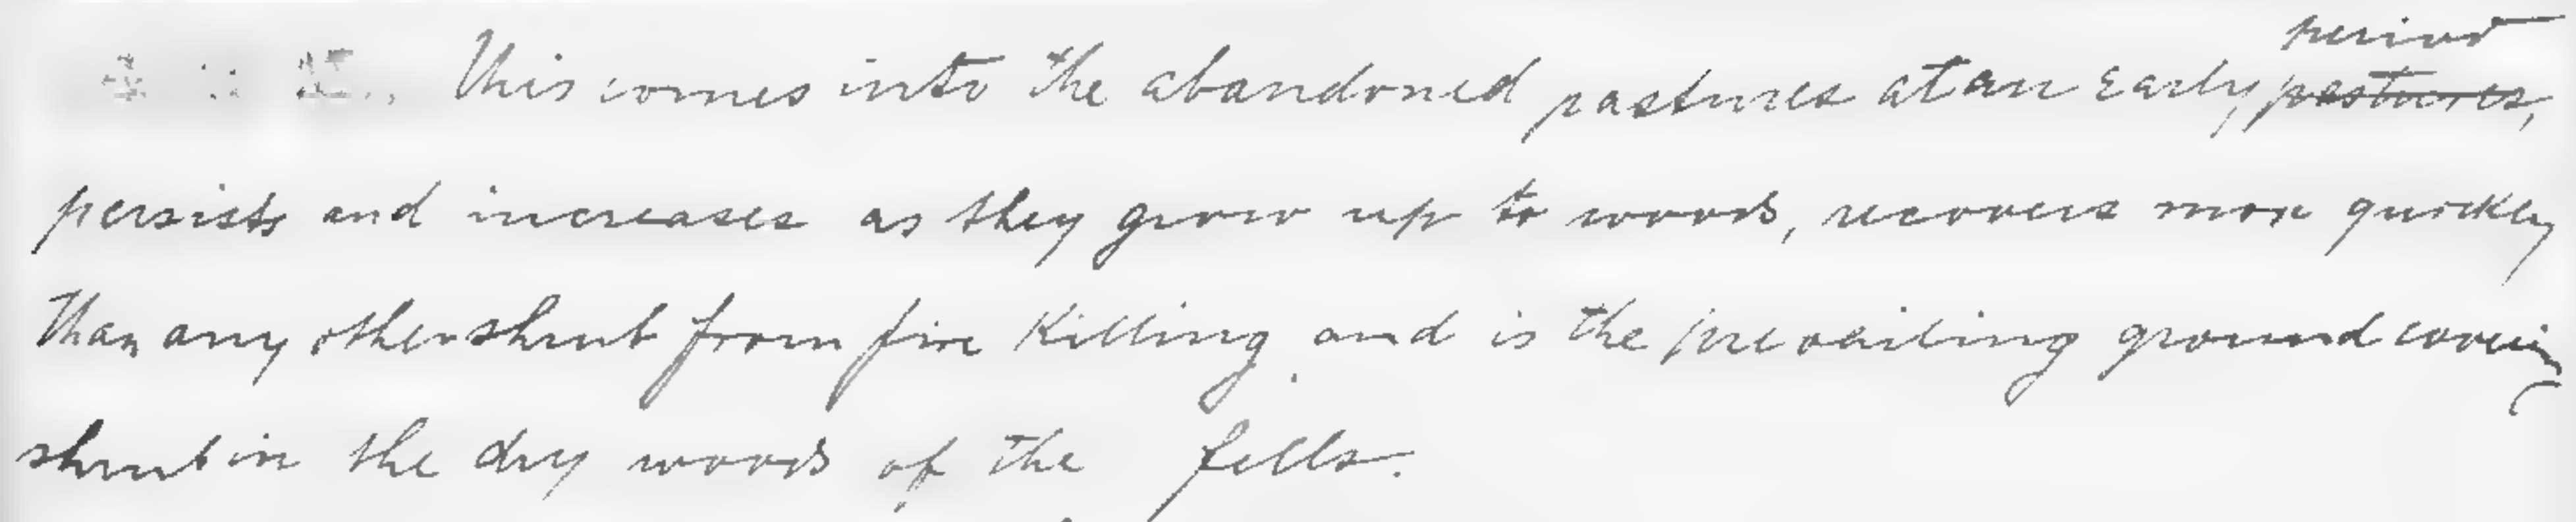 This comes into the abandoned pastures at an early period ~~pastures~~,
persists and increases as they grow up to woods, recovers more quickly
than any other shrub from fire killing and is the prevailing ground covering
shrub in the dry woods of the fells.